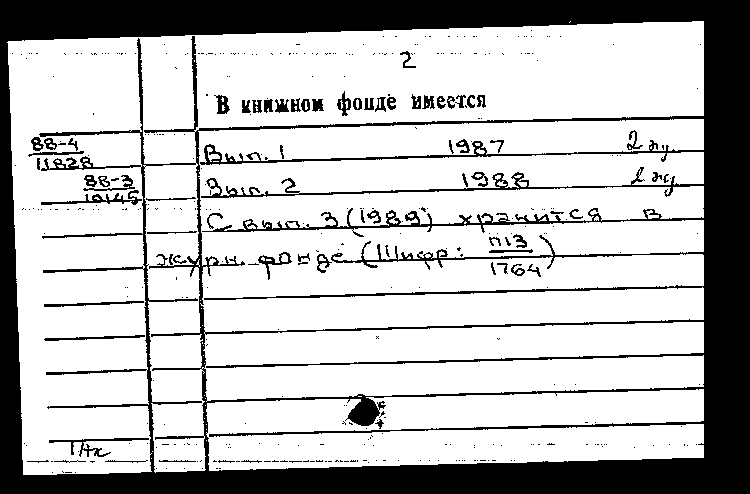 2
В книжном фонде имеется
88-4
11828 Вып. 1 1987 2 экз.
88-3
10145 Вып. 2 1988 2 экз.
С вып. 3 (1989) хранится в
журн. фонде (Шифр: П13
1764)